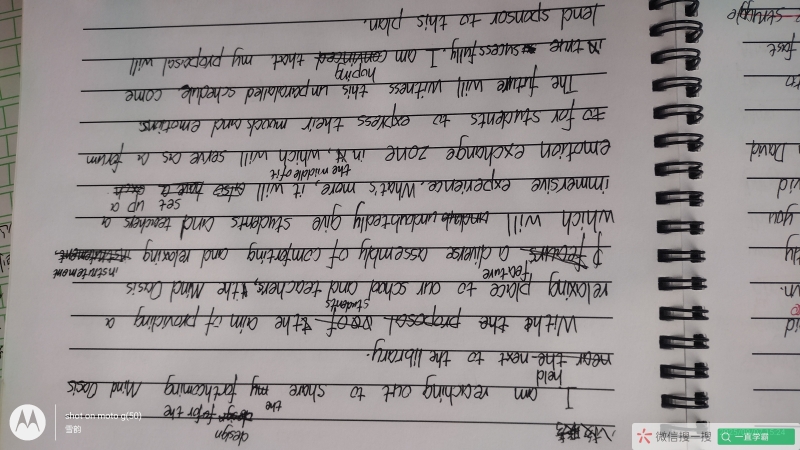 design the
I am reaching out to share my forthcoming Mind Oasis
held
near the next to the library.
With the proposal of the aim of providing a
students
relaxing place to our school and teachers, the Mind Oasis
feature instrutement
a diverse assembly of comforting and relaxing instrutement,
which will undoubtedly give students and teachers a
set up a
immersive experience. What's more, it will also
the middle of it
emotion exchange zone in it, which will serve as a forum
to for students to express their moods and emotions
The future will witness this unparalaled schedule come
hoping
in true sucessfully. I am convinced that my proposal will
lend sponsor to this plan.
struggle
fast
David
you
shot on moto g(50)
雪韵
微信搜一搜
一直学霸